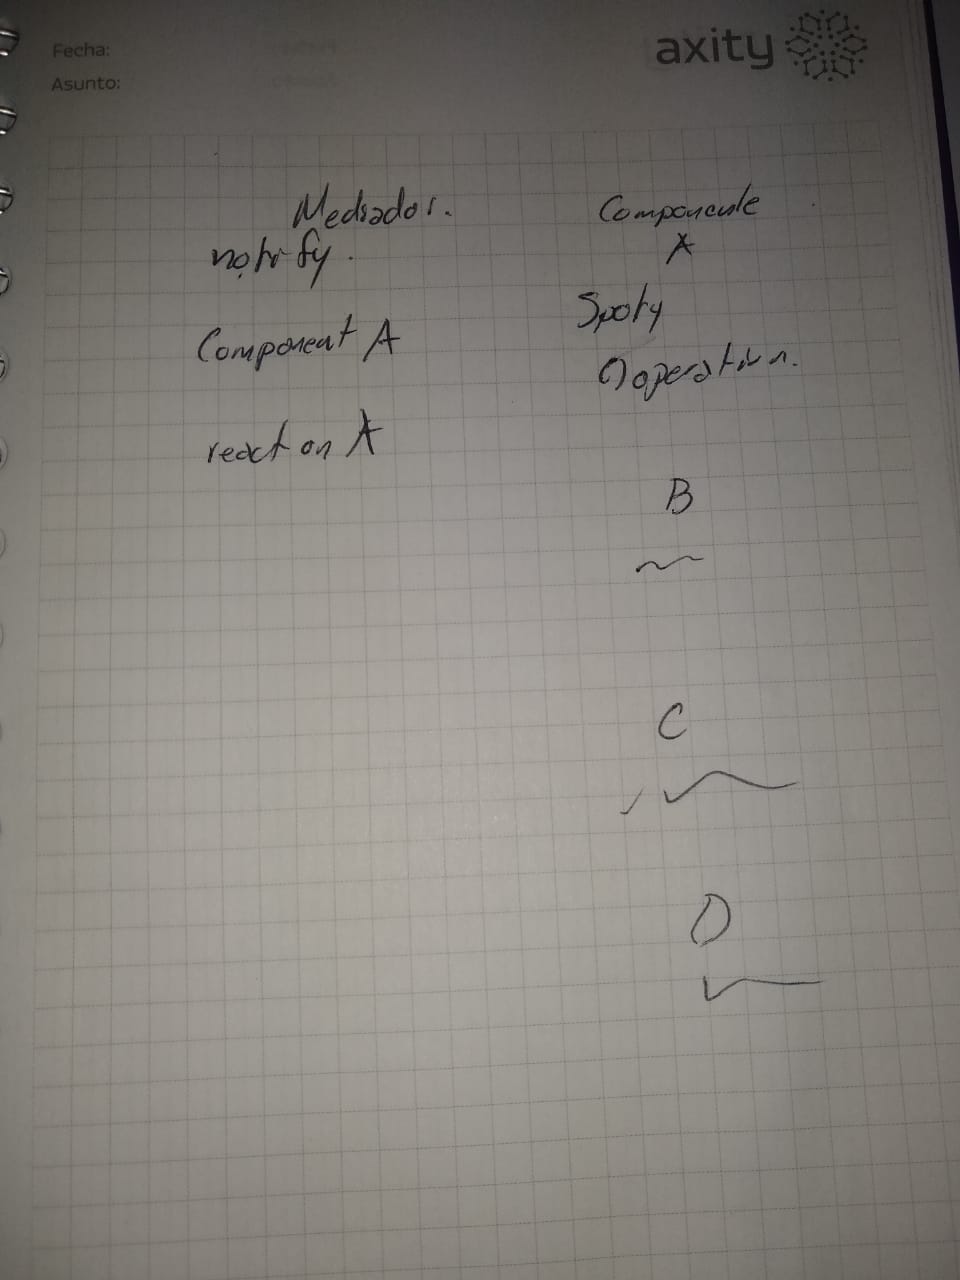 Fecha:
Asunto:
axity
Mediador.
notify.
Component A
react on A
Componente
A
Operation.
B
C
D